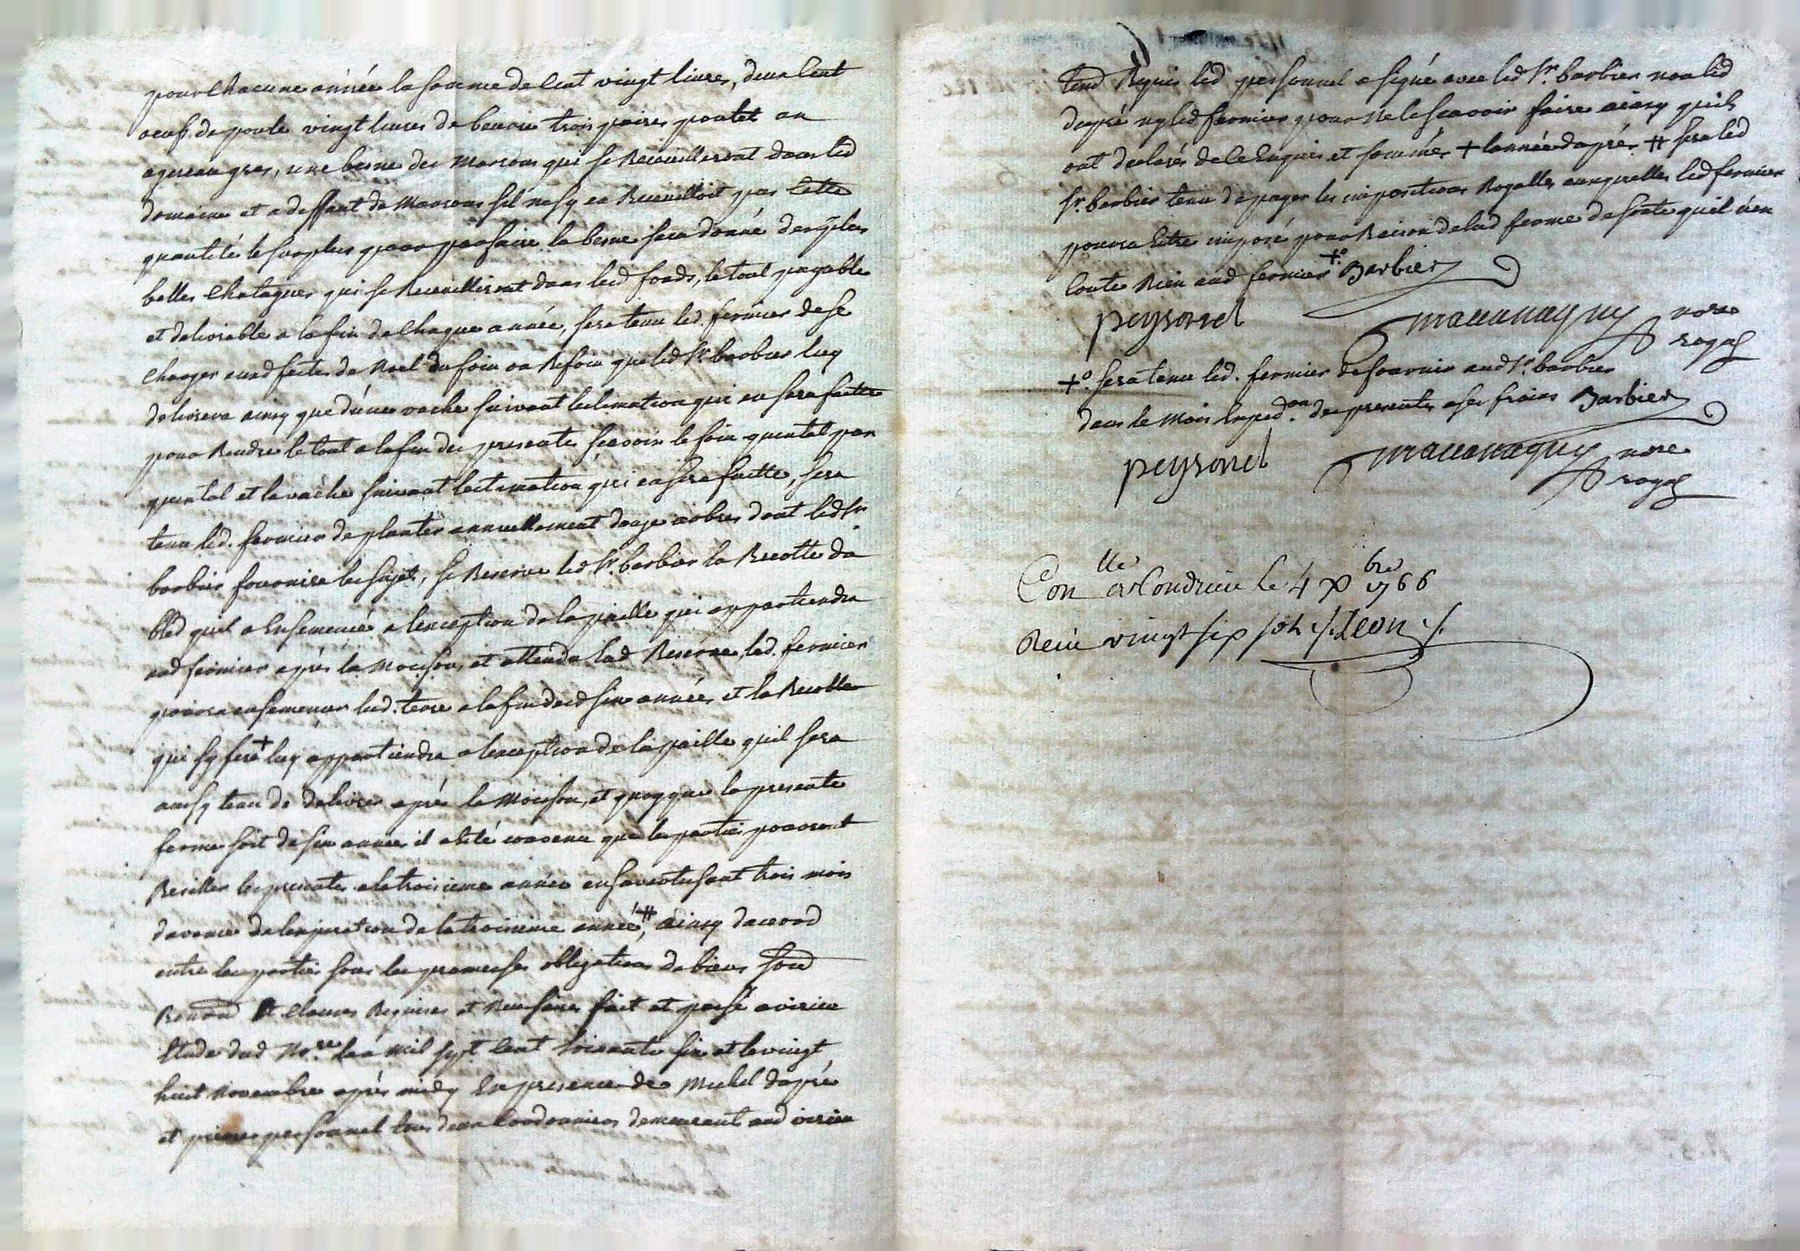 pour chacune année la somme de cent vingt livres, deux cent
oeufs de poule vingt livres de beurre trois paires poulet un
agneau gras, une benne des marrons qui se Recueilleront dans led
domaine et a deffaut de Marrons sil nesy en Recueilloit pas cette
quantité le surplus pour parfaire la benne sera donné des plus
belles chataignes qui se Recueilliront dans led fonds, le tout payable
et delivrable a la fin de chaque année, sera tenu led. fermier de se
charger aux d fettes de Noel du foin ou Refoin que led Sr barbier luy
delivrera ainsy que d'une vache suivant lestimation qui en sera faitte
pour Rendre le tout a la fin des presentes scavoir le foin quintal par
quintal et la vache suivant lestimation qui en sera faitte, sera
tenu led. fermier de planter annuellement douze arbres dont led Sr
barbier fournira les sujets, se Reserve led Sr. barbier la Recotte du
bled quil a Ensemencé a lexception de la paille qui appartiendra
aud fermier après la Moisson, et attendu lad Reserve, led. fermier
pourra ensemencer lad. terre a la fin desd six années et la Recolte
qui sy fera + luy appartiendra a lexception de la paille quil sera
aussy tenu de delivrer après la Moisson, et quoyque la presente
ferme soit de six années il a été convenu que les parties pourront
Resilier les presentes a la troisieme année en savertissant trois mois
davance de lexpiration de la troisieme année, # ainsy daccord
entre les parties sous les promesses obligations de biens
et clauses Requises et Necessaires fait et passé a virieu
Etude dud No.re lan Mil sept Cent soixante six et le vingt
huit novembre après midy En presence de Michel dupré
et pierre personnel tous deux Cordonniers demeurant aud virieu
Requis led personnel a signé avec led Sr barbier non led
dupré ny led fermier pour ne le scavoir faire ainsy quils
ont declarés de ce Enquis et sommés + lannée daprès # sera led
Sr. barbier tenu de payer les impositions Royalles auxquelles led fermier
pourra Estre imposé pour Raison de lad ferme de sorte quil n'en
Coute Rien aud fermier +o Barbier
peyronel nore
royal
+o. sera tenu led. fermier de fournir aud Sr. barbier
dans le Mois Exped.on des presentes a ses fraix Barbier
peyronel nore
royal
Con lle a Condrieu le 4 Xbre 1766
Reçu vingt six sols Leon